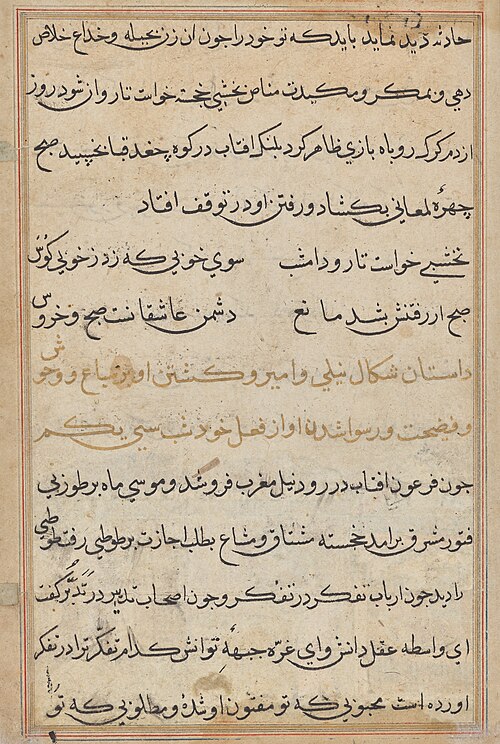 حادثه پدید نماید باید که تو خود را چون ان زن بحیله و خداع خلاص
دهی و بمکر و مکیدت مناص نخشبی خجسته خواست تا روان شود روز
از دم گرگ روباه بازی ظاهر کرد پلنک افتاب در کوه چغد قبا بخسپید صبح
چهرهٔ لمعانی بکشاد و رفتن او در توقف افتاد
نخشبی خواست تا رود امشب سوی خوبی که زد ز خوبی کوس
صبح از رفتنش بشد مانع دشمن عاشقانست صبح و خروس
داستان شکال نیلی و امیر و کشتن او بر سباع و وحوش
و فضیحت و رسوا شدن او از فعل خود شب سی یکم
چون فرعون افتاب در رود نیل مغرب فرو شد و موسی ماه بر طور زبی
فتور مشرق برامد خجسته مشتاق و مشاع بطلب اجازت بر طوطی رفت طوطی
را دید چون ارباب تفکر در تفکر و چون اصحاب تدبیر در تدبر گفت
ای واسطه عقل دانش و ای غره جبههٔ توانش کدام تفکر ترا در تفکر
اورده است محبوبی که تو مفتون او شدهٔ و مطلوبی که تو